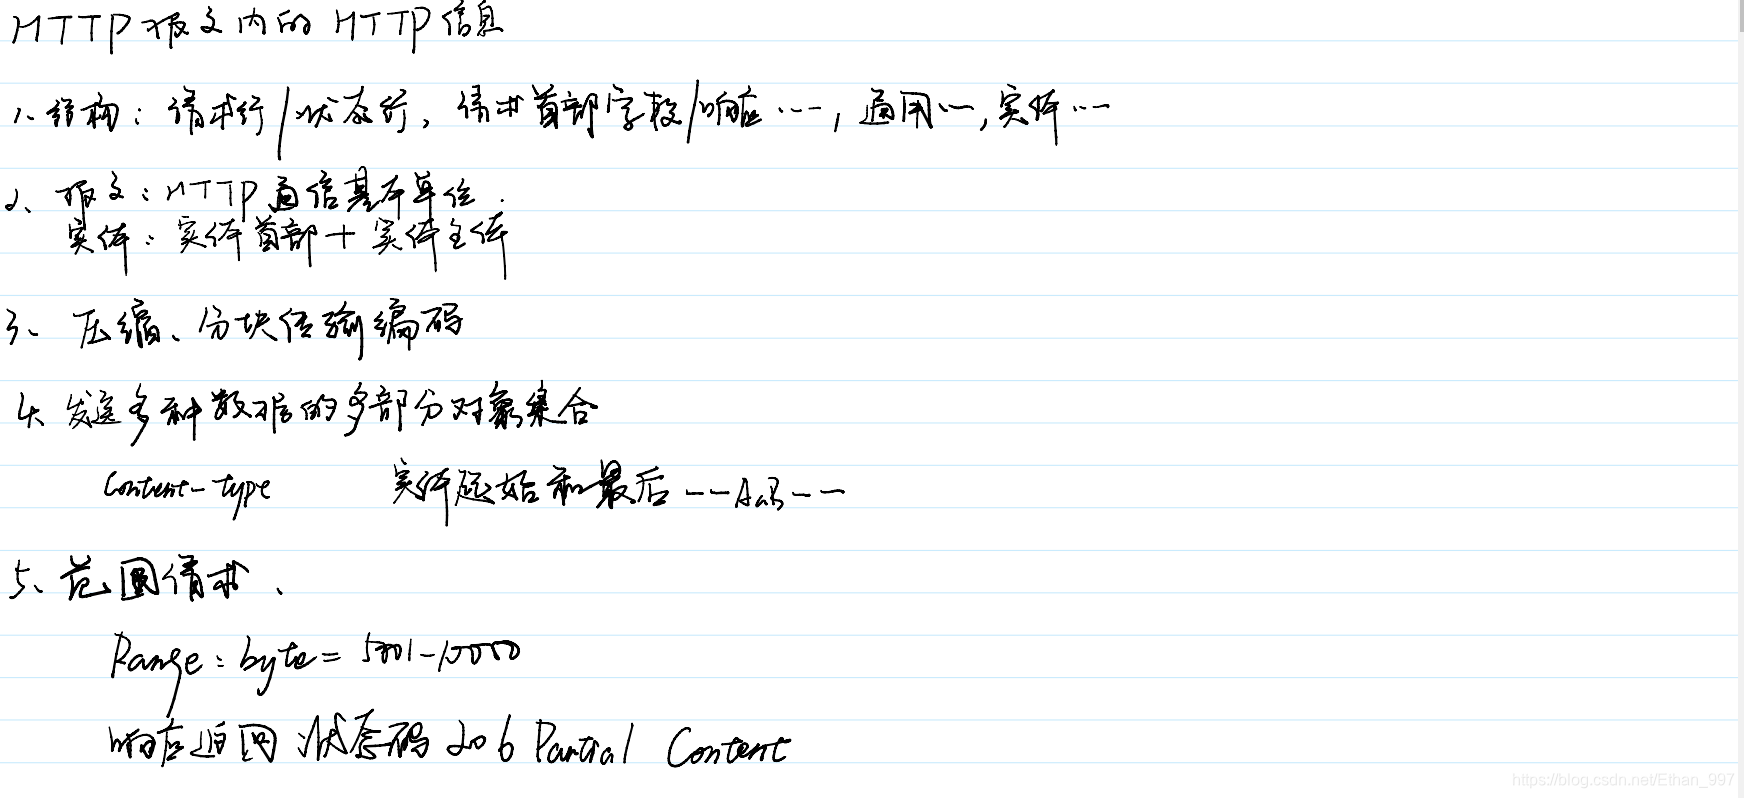 HTTP报文内的HTTP信息
1、结构：请求行/状态行，请求首部字段/响应…，通用…，实体…
2、报文：HTTP通信基本单位.
实体：实体首部+实体主体
3、压缩、分块传输编码
4、发送多种数据的多部分对象集合
Content-type 实体起始和最后--AaB--
5、范围请求、
Range：byte=5001-10000
响应返回状态码206 Partial Content
https://blog.csdn.net/Ethan_997